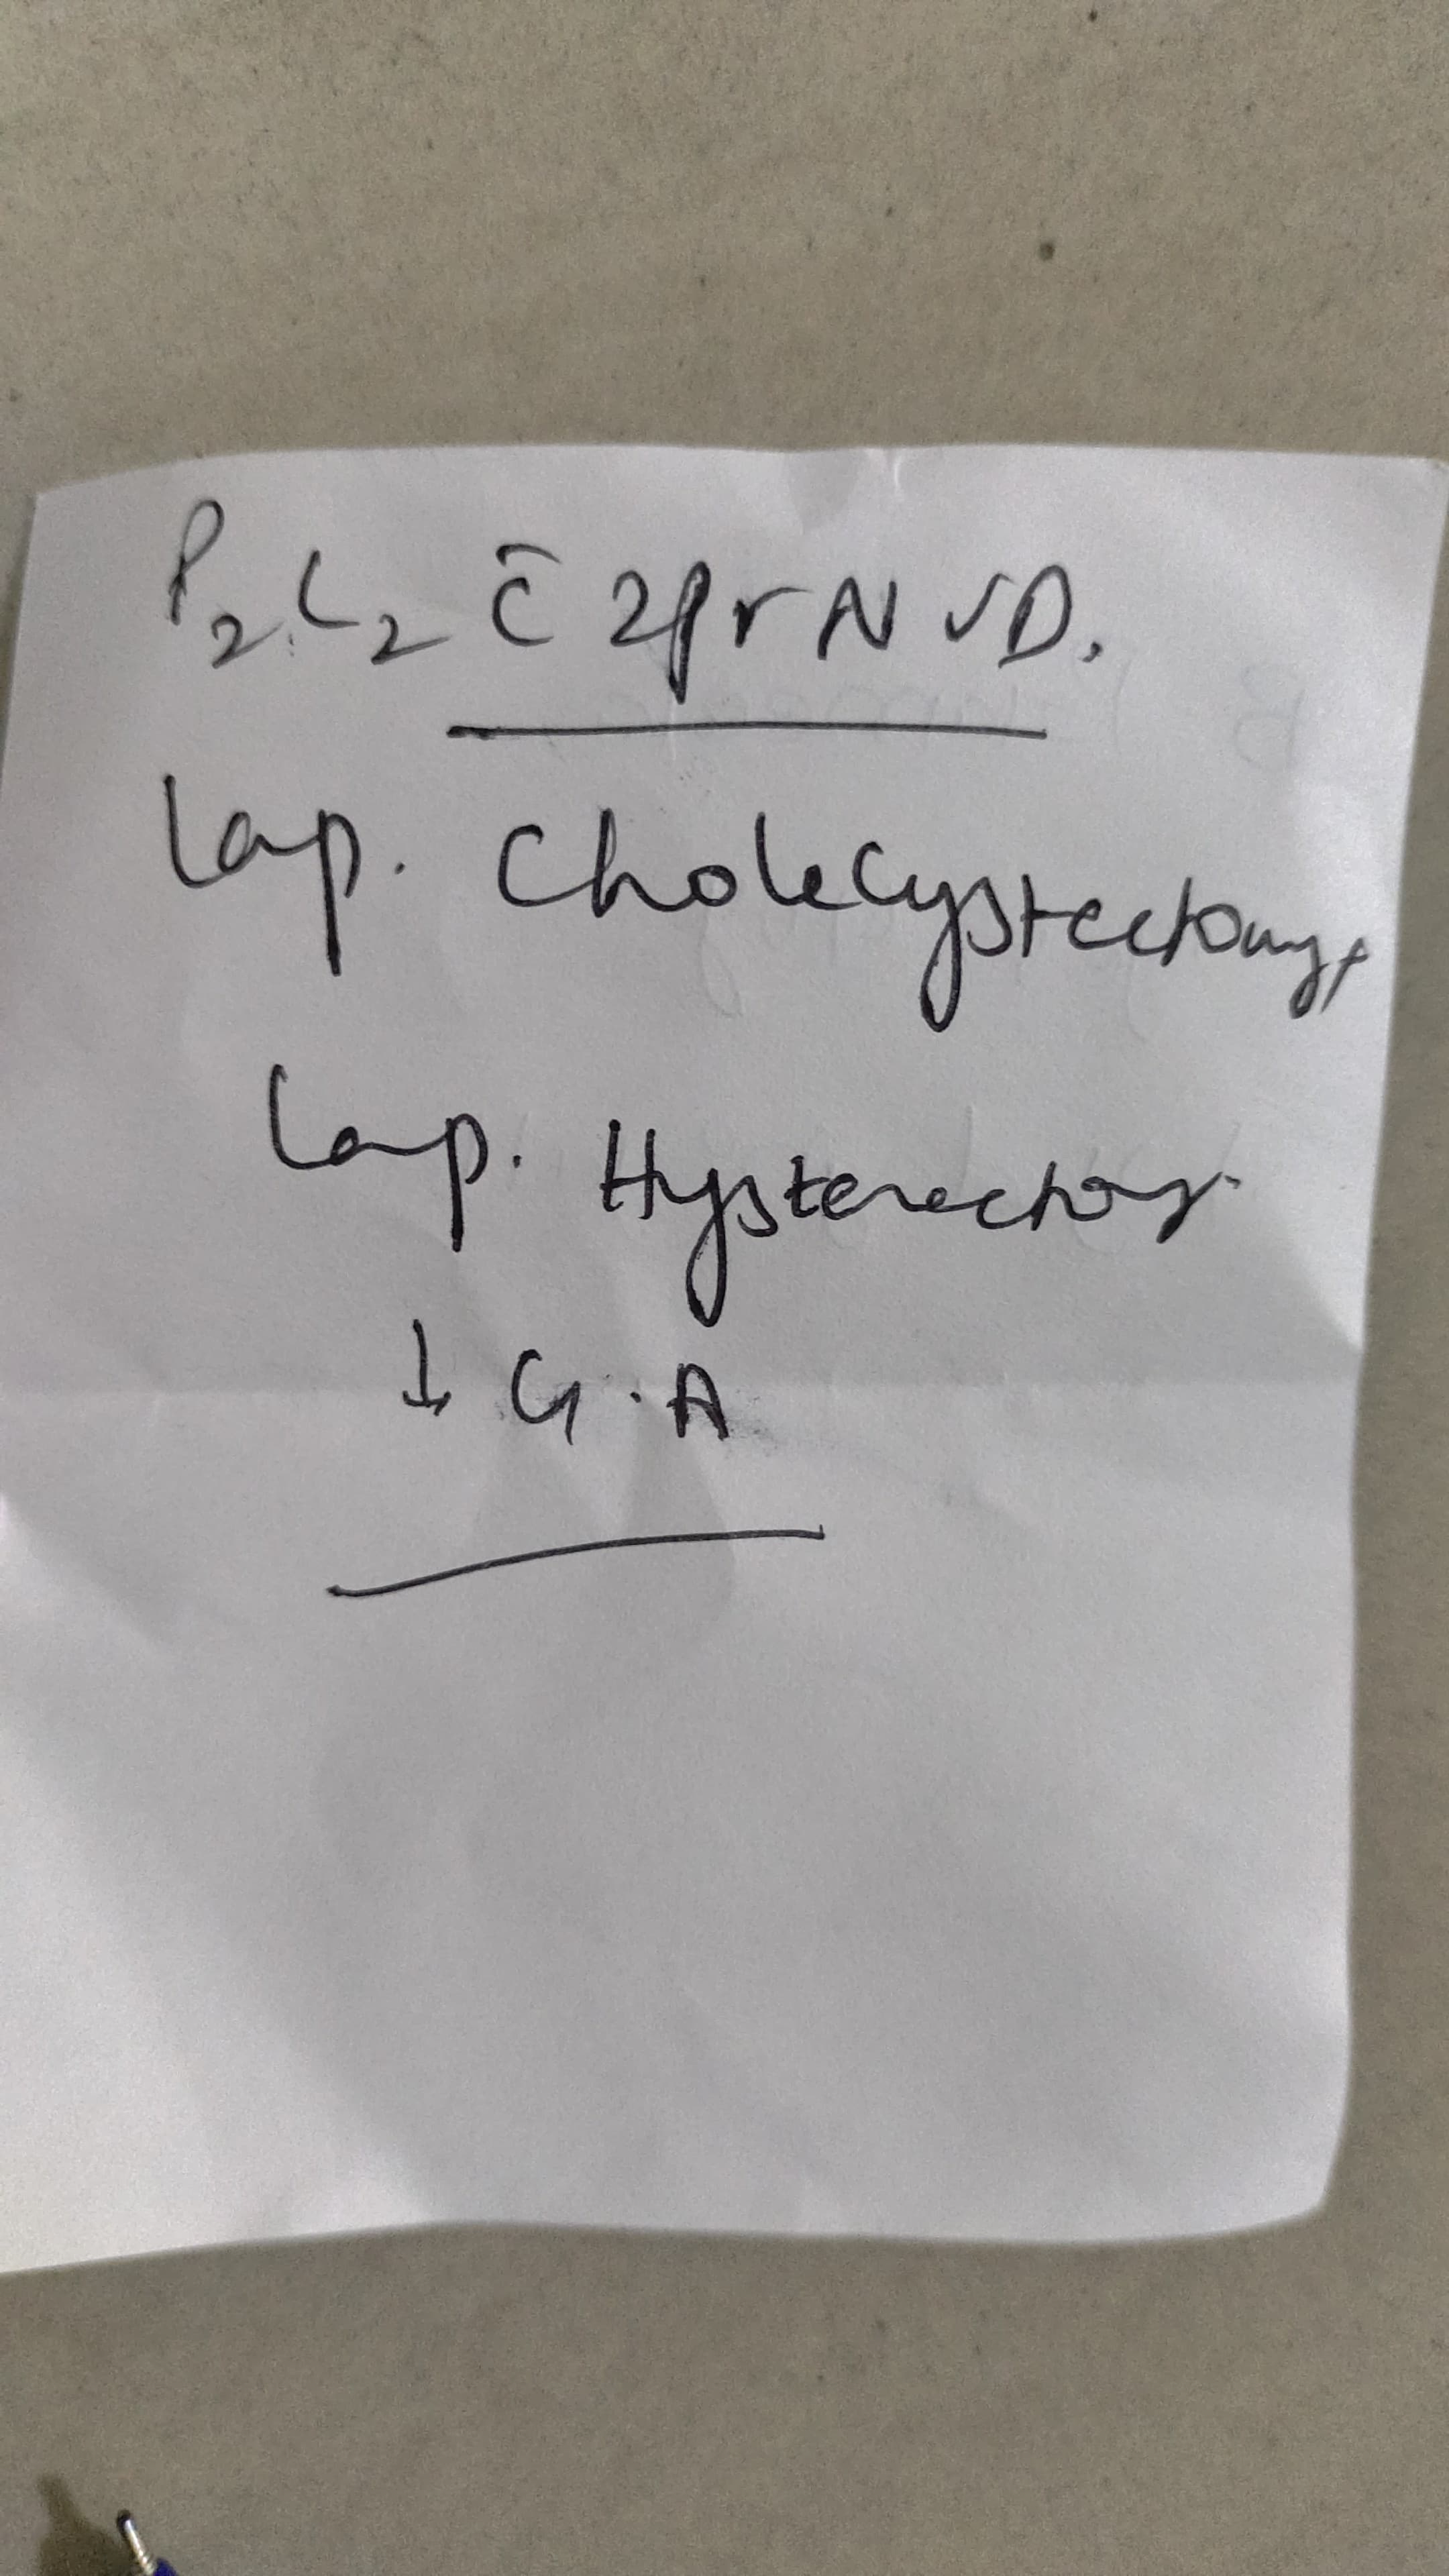 P2L2 c̄ 2 pr NVD.
Lap. Cholecystectomy,
Lap. Hysterectomy.
↓ G.A